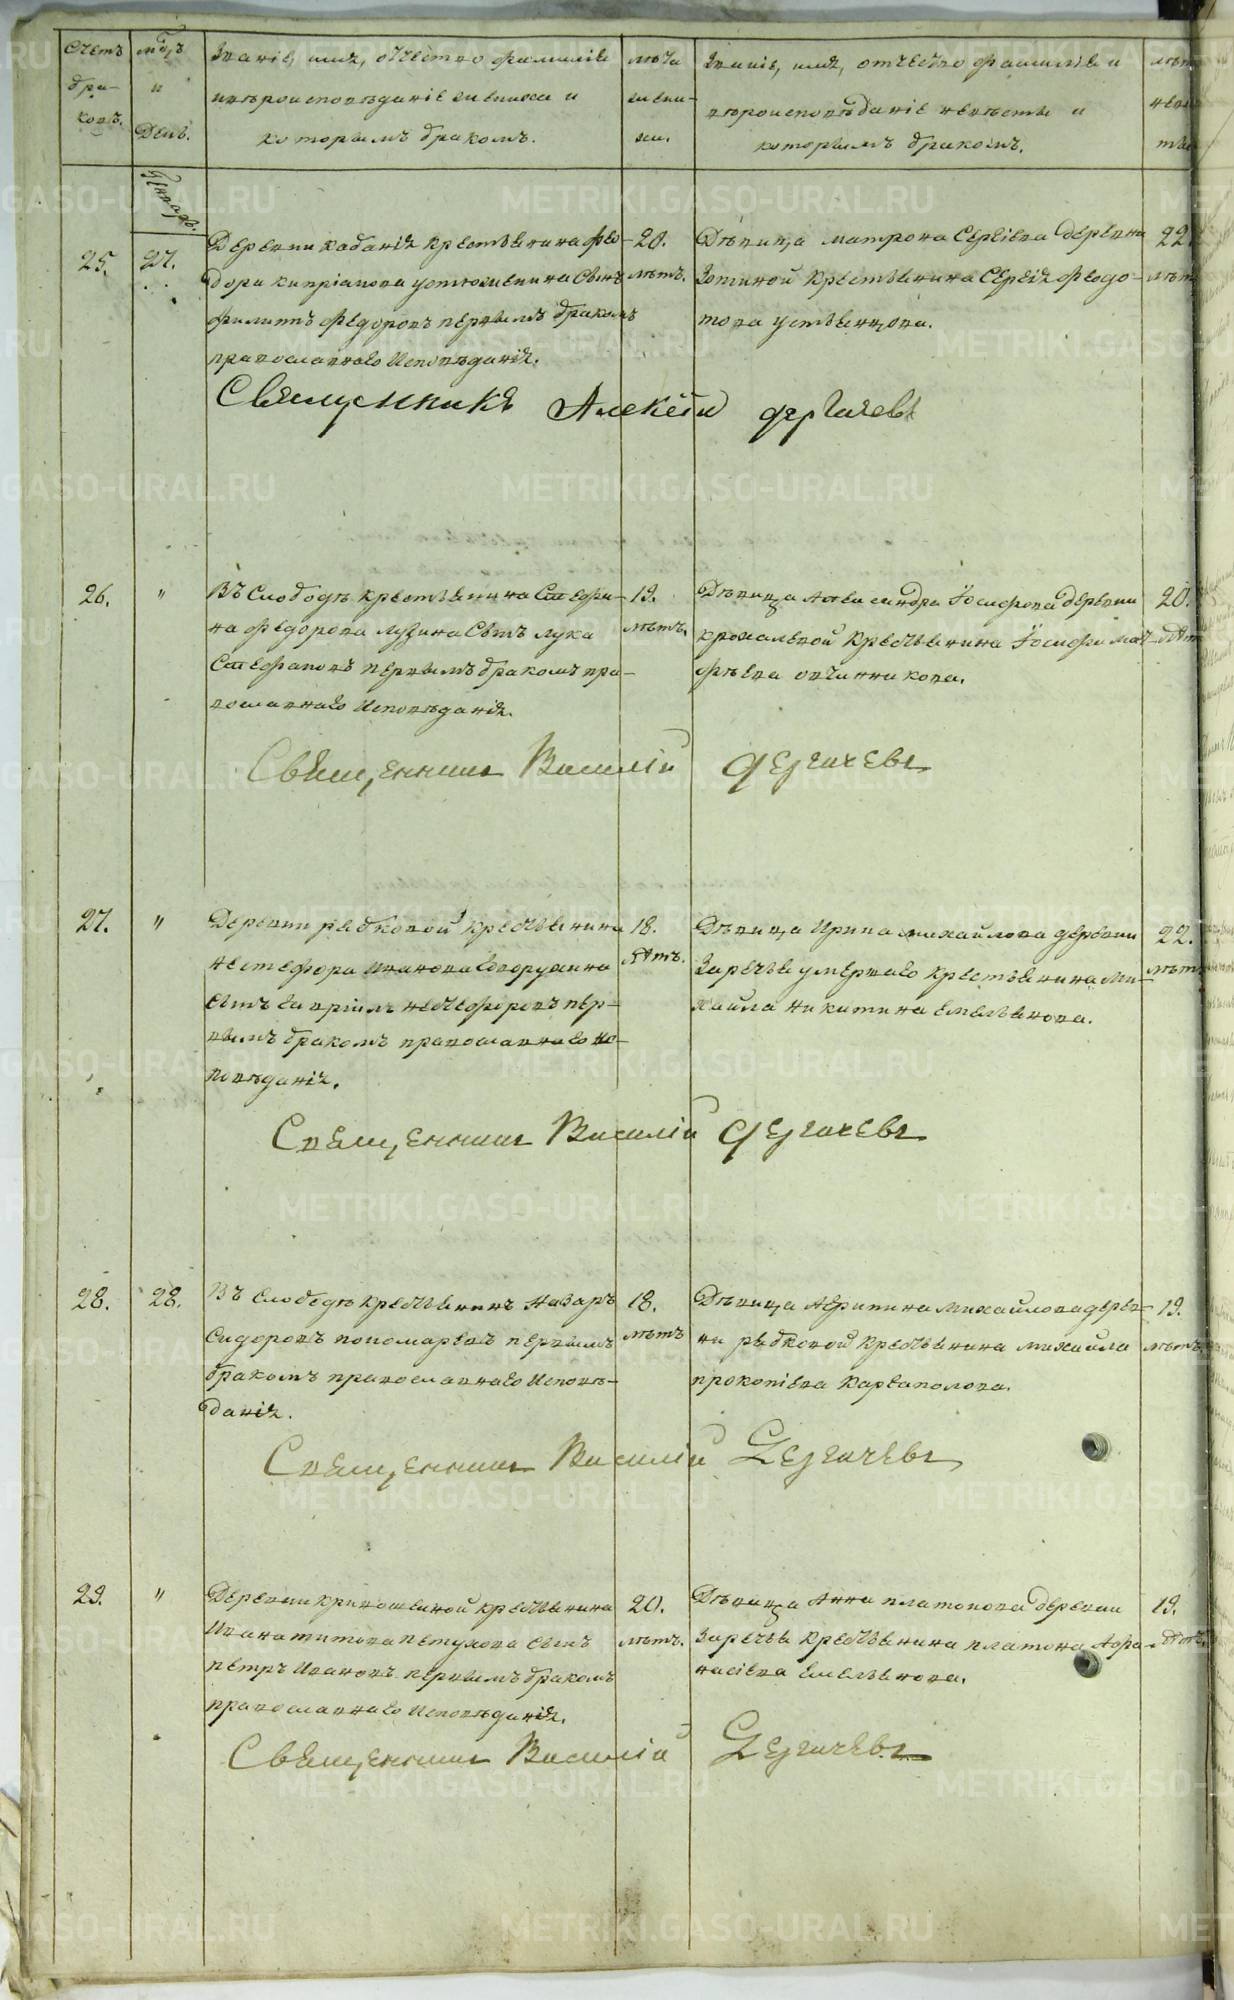 Счетъ бра-ковъ.
Мцъ и День.
Званіе, имя, отчество фамилія и
вѣроисповѣданіе жениха и
которымъ бракомъ.
лѣта
жени-
ха.
Званіе, имя, отчество фамилія и
вѣроисповѣданіе невѣсты и
которымъ бракомъ.
лѣт
невѣ
Генварь.
25.
27.
Деревни Кабанія крестьянина Фео-
дора Кипріанова Устюжанина Сынъ
Филиппъ Федоровъ первымъ бракомъ
православнаго Исповѣданія.
20.
лѣтъ.
Дѣвица Матрона Сергіева деревни
Зотиной Крестьянина Сергія Федо-
това Устьянцова.
22
лѣт
Священникъ Алексѣй Дергачевъ
26.
"
Въ Слободѣ крестьянина Стефа-
на Федорова Лузина Сынъ Лука
Стефановъ первымъ бракомъ пра-
вославнаго Исповѣданія.
19.
лѣтъ.
Дѣвица Александра Іосифова деревни
крохалевой Крестьянина Іосифа Мат-
фѣева овчинникова.
20.
лѣт
Священникъ Василій Дергачевъ
27.
"
Деревни рябковой Крестьянина
Нестефора Иванова
Сынъ Гавріилъ Нестефоровъ пер-
вымъ бракомъ православнаго ис-
повѣданія.
18.
лѣтъ.
Дѣвица Ирина михайлова деревни
Заречья умершаго Крестьянина Ми-
хайла Никитина Емельянова.
22.
лѣт
Священникъ Василій Дергачевъ
28.
28.
Въ Слободѣ Крестьянинъ Назаръ
Сидоровъ пономаревъ первымъ
бракомъ православнаго Исповѣ-
данія.
18.
лѣтъ
Дѣвица Агрипина Михайлова дерев-
ни рябковой Крестьянина михайла
прокопіева Карзаполова.
19.
лѣтъ
Священникъ Василій Дергачевъ
29.
"
Деревни кривошеиной крестьянина
Ивана титова петухова Сынъ
петръ Ивановъ первымъ бракомъ
православнаго Исповѣданія.
20.
лѣтъ.
Дѣвица Анна платонова деревни
Заречья Крестьянина платона Афа-
насіева Емельянова.
19.
лѣтъ.
Священникъ Василій Дергачевъ
METRIKI.GASO-URAL.RU